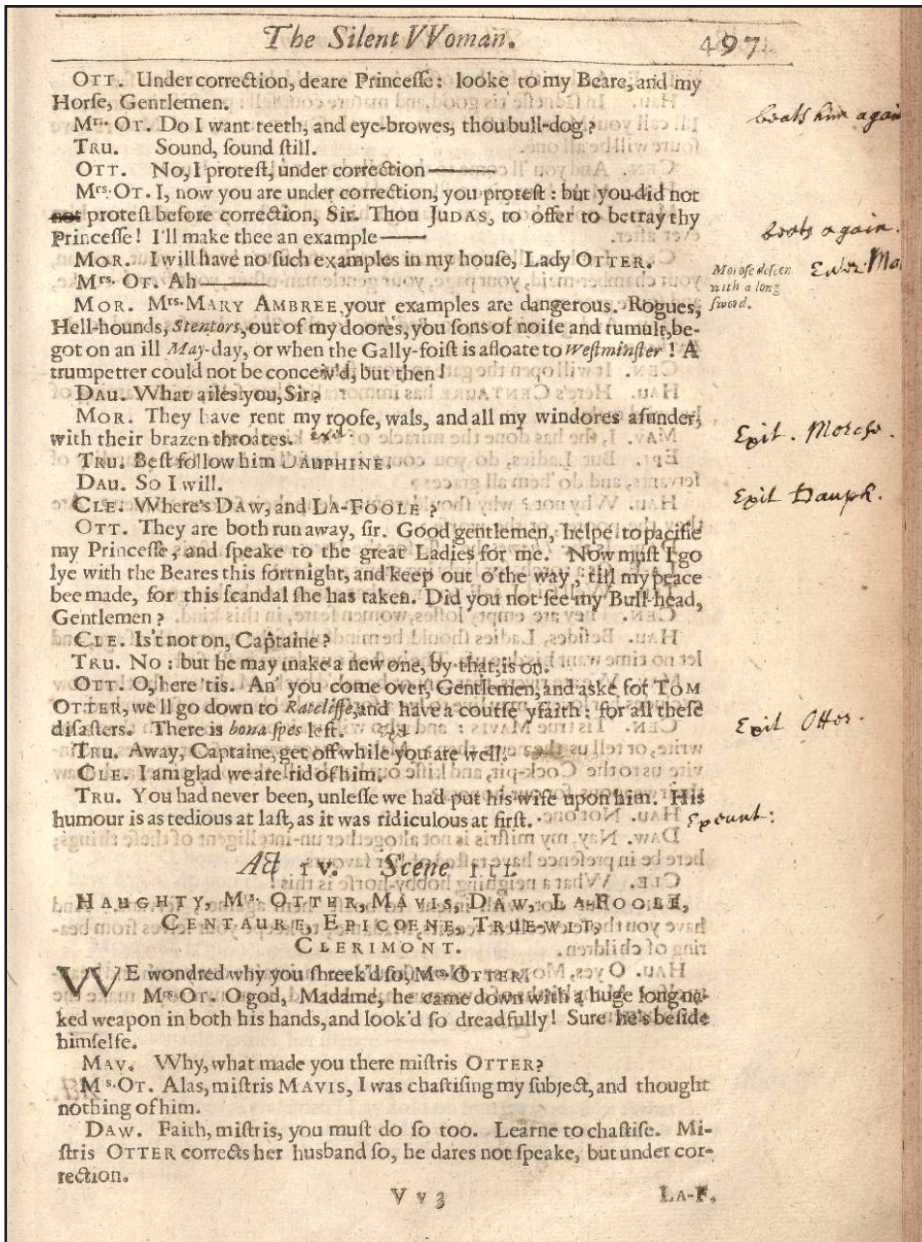 The Silent VVoman. 497
OTT. Under correction, deare Princesse: looke to my Beare, and my
Horse, Gentlemen.
Mrs. OT. Do I want teeth, and eye-browes, thou bull-dog? beats him again
TRU. Sound, sound still.
OTT. No, I protest, under correction———
Mrs. OT. I, now you are under correction, you protest: but you did not
not protest before correction, Sir. Thou JUDAS, to offer to betray thy
Princesse! I'll make thee an example—— beats again.
MOR. I will have no such examples in my house, Lady OTTER.
Morose descen
with a long
sword.
Enter Mo
Mrs. OT. Ah————
MOR. Mrs. MARY AMBREE, your examples are dangerous. Rogues,
Hell-hounds, Stentors, out of my doores, you sons of noise and tumult, be-
got on an ill May-day, or when the Gally-foist is afloate to Westminster! A
trumpetter could not be conceiv'd, but then!
DAU. What ailes you, Sir?
MOR. They have rent my roofe, wals, and all my windores asunder,
with their brazen throates. exit Exit. Morose.
TRU. Best follow him DAUPHINE.
DAU. So I will. Exit Dauph.
CLE. Where's DAW, and LA-FOOLE?
OTT. They are both run away, sir. Good gentlemen, helpe to pacifie
my Princesse, and speake to the great Ladies for me. Now must I go
lye with the Beares this fortnight, and keep out o'the way, till my peace
bee made, for this scandal she has taken. Did you not see my Bull-head,
Gentlemen?
CLE. Is't not on, Captaine?
TRU. No: but he may make a new one, by that, is on.
OTT. O, here 'tis. An' you come over, Gentlemen, and aske for TOM
OTTER, we'll go down to Ratcliffe, and have a course yfaith: for all these
disasters. There is bona spes left. Exit Otter.
TRU. Away, Captaine, get off while you are well.
CLE. I am glad we are rid of him.
TRU. You had never been, unlesse we had put his wife upon him. His
humour is as tedious at last, as it was ridiculous at first. Exeunt:
Act IV. Scene III.
HAUGHTY, Mrs. OTTER, MAVIS, DAW, LA-FOOLE,
CENTAURE, EPICOENE, TRUE-WIT,
CLERIMONT.
WE wondred why you shreek'd so, Mrs. OTTER.
Mrs. OT. O god, Madame, he came down with a huge long na-
ked weapon in both his hands, and look'd so dreadfully! Sure he's beside
himselfe.
MAV. Why, what made you there mistris OTTER?
Ms. OT. Alas, mistris MAVIS, I was chastising my subject, and thought
nothing of him.
DAW. Faith, mistris, you must do so too. Learne to chastise. Mi-
stris OTTER corrects her husband so, he dares not speake, but under cor-
rection.
V v 3 LA-F.